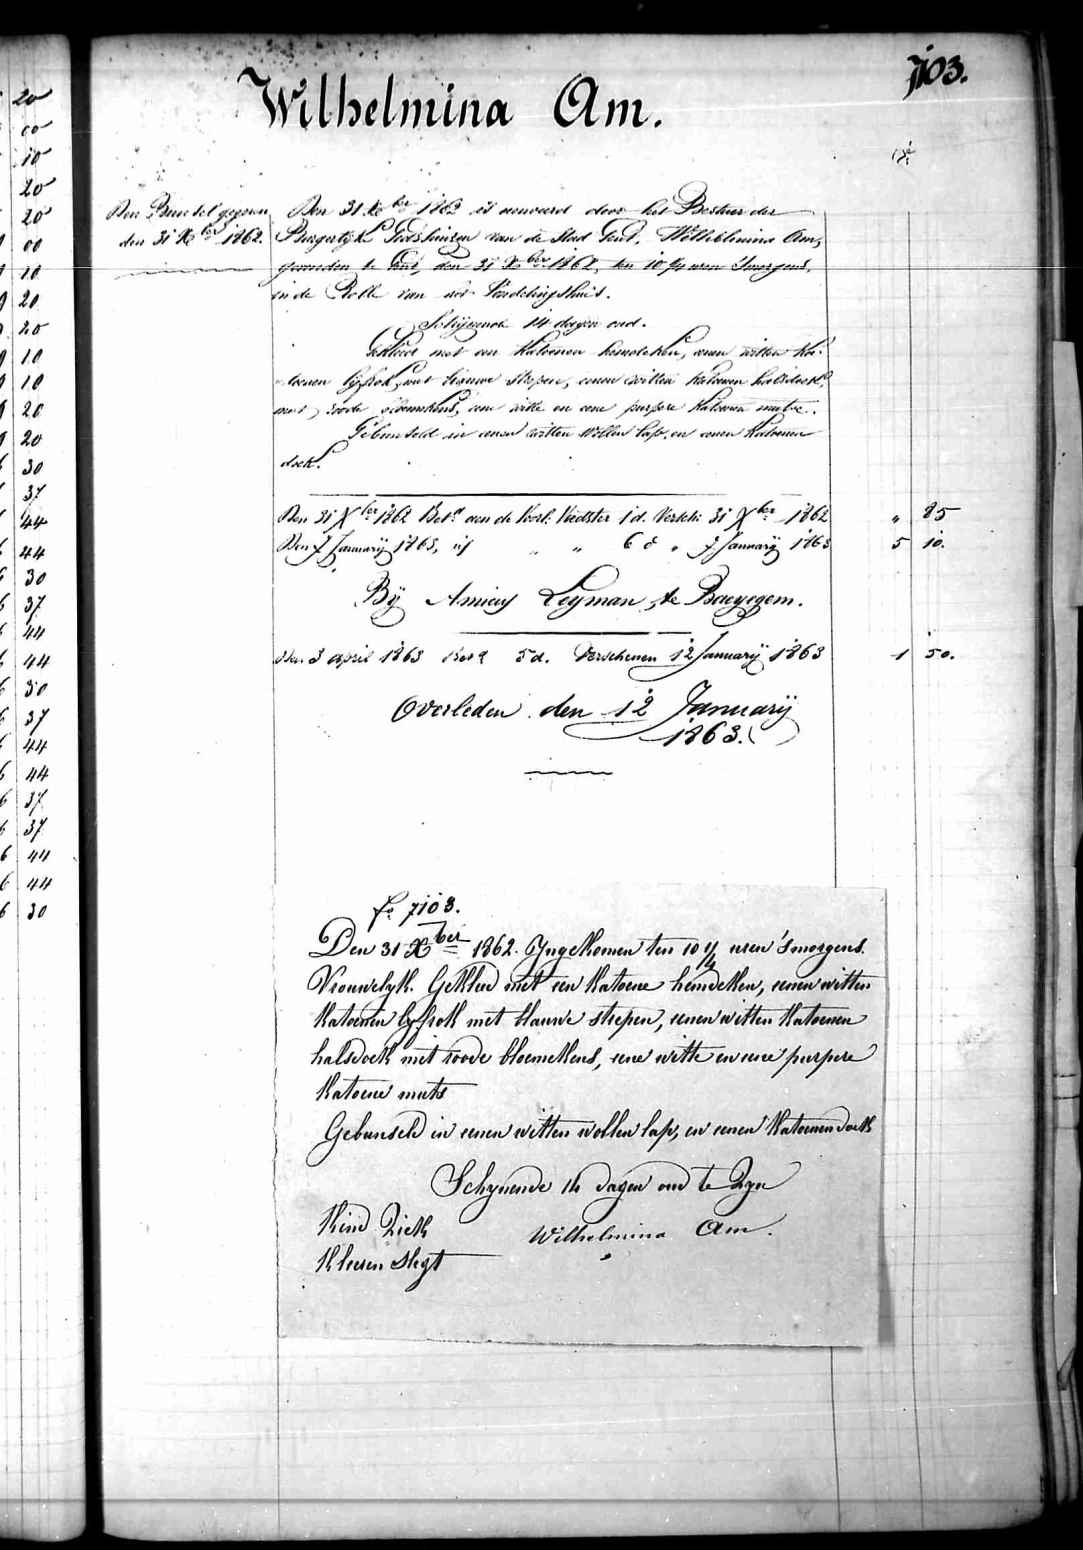 7103.
Wilhelmina Am.
Den Bunsel gegeven
den 31 Xber 1862.
Den 31 Xber 1862 is aenveerd door het Bestuer der
Burgerlyke Godshuizen van de Stad Gent, Wilhelmina Am,
gevonden te Gent, den 31 Xber 1862, ten 10 1/4 uren Smorgens,
in de Rolle van het Vondelingshuis.
Schijnende 14 dagen oud.
Gekleed met een Katoenen hemdeken, eenen witten Ka-
toenen lyfrok, met blauwe strepen, eenen witten Katoenen halsdoek,
met roode bloemkens, eene witte en eene purpere Katoenen mutse.
Gebunseld in eenen witten Wollen lap, en eenen Katoenen
doek.
Den 31 Xber 1862 Bet. aen de Voorl. Voedster 1 d. Versch: 31 Xber 1862 " 85
Den 7 Januarij 1863, id " " 6 d " 7 Januarij 1863 5 10.
Bij Amicus Leyman te Baeyegem.
Den 3 april 1863 Bet. 5 d. Verschenen 12 Januarij 1863 1 50.
Overleden den 12 Januarij
1863.
fo 7103.
Den 31 Xber 1862. Yngekomen ten 10 1/4 uren 'smorgens.
Vrouwelyk. Gekleed met een Katoene hemdeken, eenen witten
Katoenen lyfrok met blauwe strepen, eenen witten Katoenen
halsdoek met roode bloemekens, eene witte en eene purpere
Katoene muts
Gebunseld in eenen witten wollen lap, en eenen Katoenen doek
Schynende 14 dagen oud te Zyn
Kind Ziek
Wilhelmina Am.
Kleeren slegt
20
00
10
20
20
00
10
20
20
10
10
20
20
30
37
44
44
30
37
44
44
30
37
44
44
37
37
44
44
30